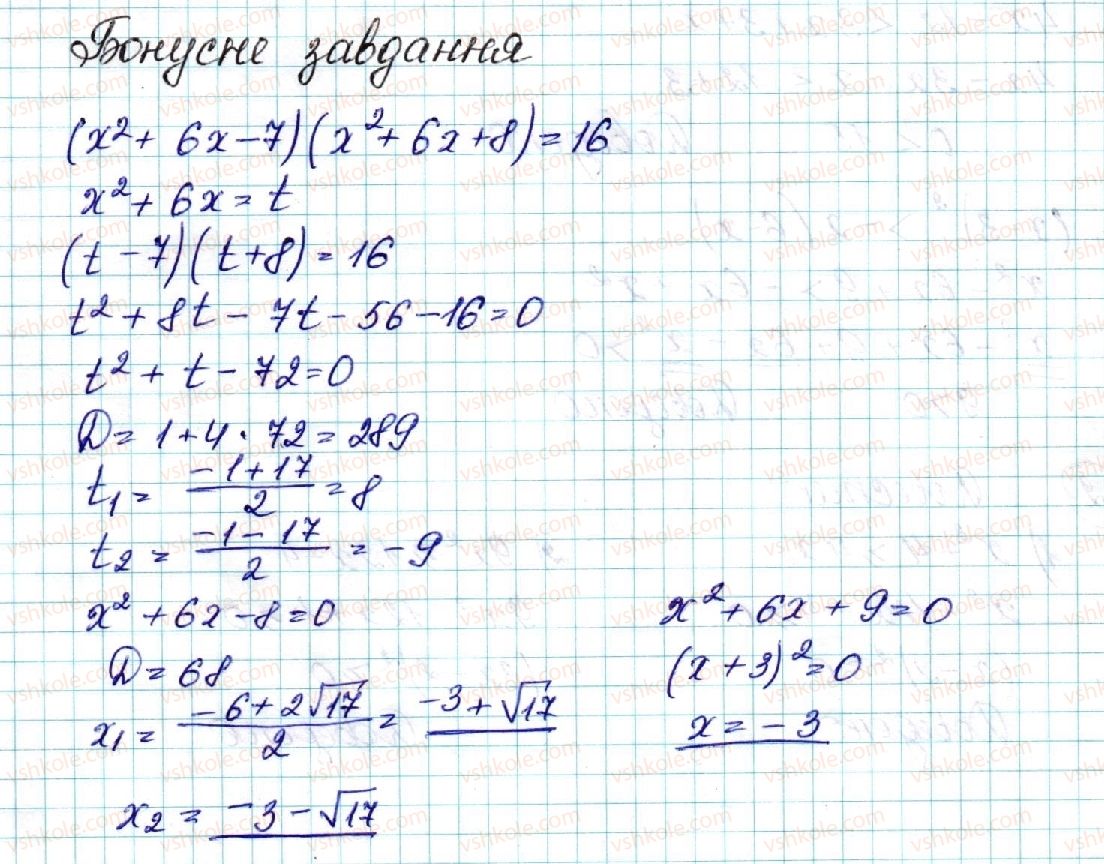 Бонусне завдання
(x² + 6x - 7)(x² + 6x + 8) = 16
x² + 6x = t
(t - 7)(t + 8) = 16
t² + 8t - 7t - 56 - 16 = 0
t² + t - 72 = 0
D = 1 + 4 · 72 = 289
t₁ = (-1 + 17)/2 = 8
t₂ = (-1 - 17)/2 = -9
x² + 6x - 8 = 0
D = 68
x₁ = (-6 + 2√17)/2 = -3 + √17
x₂ = -3 - √17
x² + 6x + 9 = 0
(x + 3)² = 0
x = -3
vshkole.com